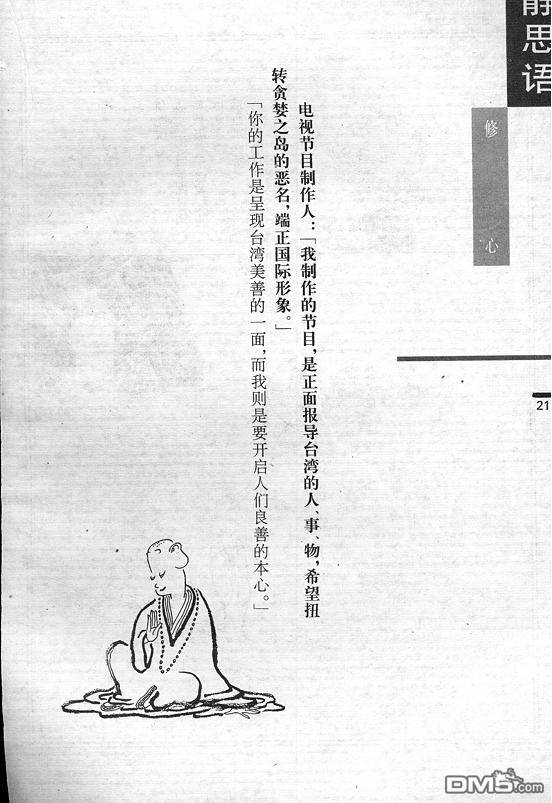 静思语
修心
21
电视节目制作人：「我制作的节目，是正面报导台湾的人、事、物，希望扭
转贪婪之岛的恶名，端正国际形象。」
「你的工作是呈现台湾美善的一面，而我则是要开启人们良善的本心。」
DM5.com